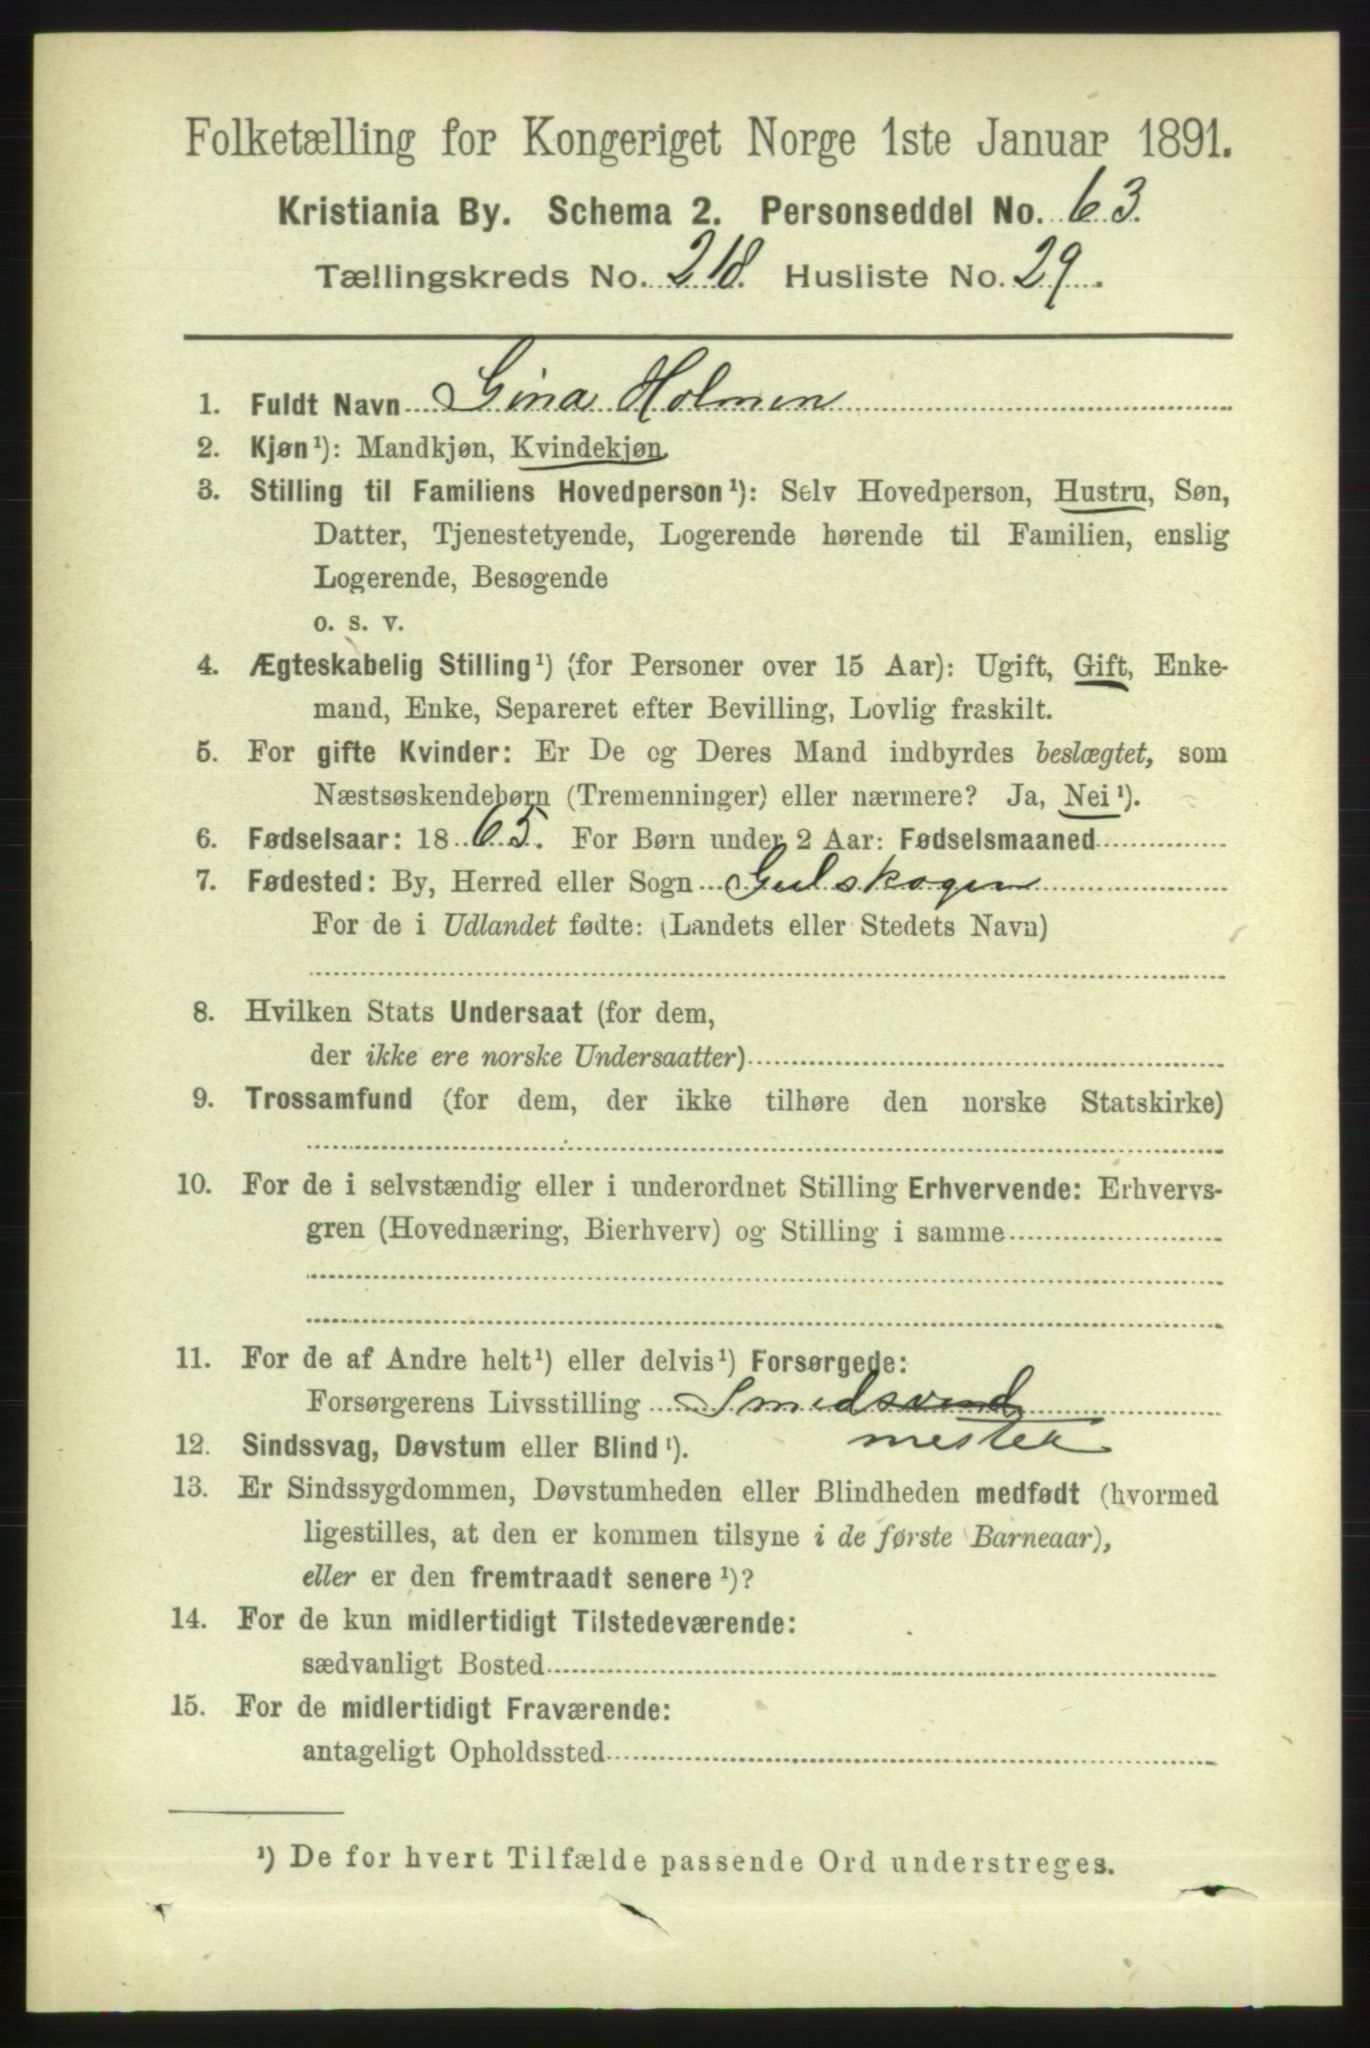 Folketælling for Kongeriget Norge 1ste Januar 1891.
Kristiania By. Schema 2. Personseddel No. 63.
Tællingskreds No. 218. Husliste No. 29.
1. Fuldt Navn Gina Holmen
2. Kjøn¹): Mandkjøn, Kvindekjøn.
3. Stilling til Familiens Hovedperson¹): Selv Hovedperson, Hustru, Søn,
Datter, Tjenestetyende, Logerende hørende til Familien, enslig
Logerende, Besøgende
o. s. v.
4. Ægteskabelig Stilling¹) (for Personer over 15 Aar): Ugift, Gift, Enke-
mand, Enke, Separeret efter Bevilling, Lovlig fraskilt.
5. For gifte Kvinder: Er De og Deres Mand indbyrdes beslægtet, som
Næstsøskendebørn (Tremenninger) eller nærmere? Ja, Nei¹).
6. Fødselsaar: 1865. For Børn under 2 Aar: Fødselsmaaned
7. Fødested: By, Herred eller Sogn Gulskogen
For de i Udlandet fødte: (Landets eller Stedets Navn)
8. Hvilken Stats Undersaat (for dem,
der ikke ere norske Undersaatter)
9. Trossamfund (for dem, der ikke tilhøre den norske Statskirke)
10. For de i selvstændig eller i underordnet Stilling Erhvervende: Erhvervs-
gren (Hovednæring, Bierhverv) og Stilling i samme
11. For de af Andre helt¹) eller delvis¹) Forsørgede:
Forsørgerens Livsstilling Smedsvend
mester
12. Sindssvag, Døvstum eller Blind¹).
13. Er Sindssygdommen, Døvstumheden eller Blindheden medfødt (hvormed
ligestilles, at den er kommen tilsyne i de første Barneaar),
eller er den fremtraadt senere¹)?
14. For de kun midlertidigt Tilstedeværende:
sædvanligt Bosted
15. For de midlertidigt Fraværende:
antageligt Opholdssted
¹) De for hvert Tilfælde passende Ord understreges.